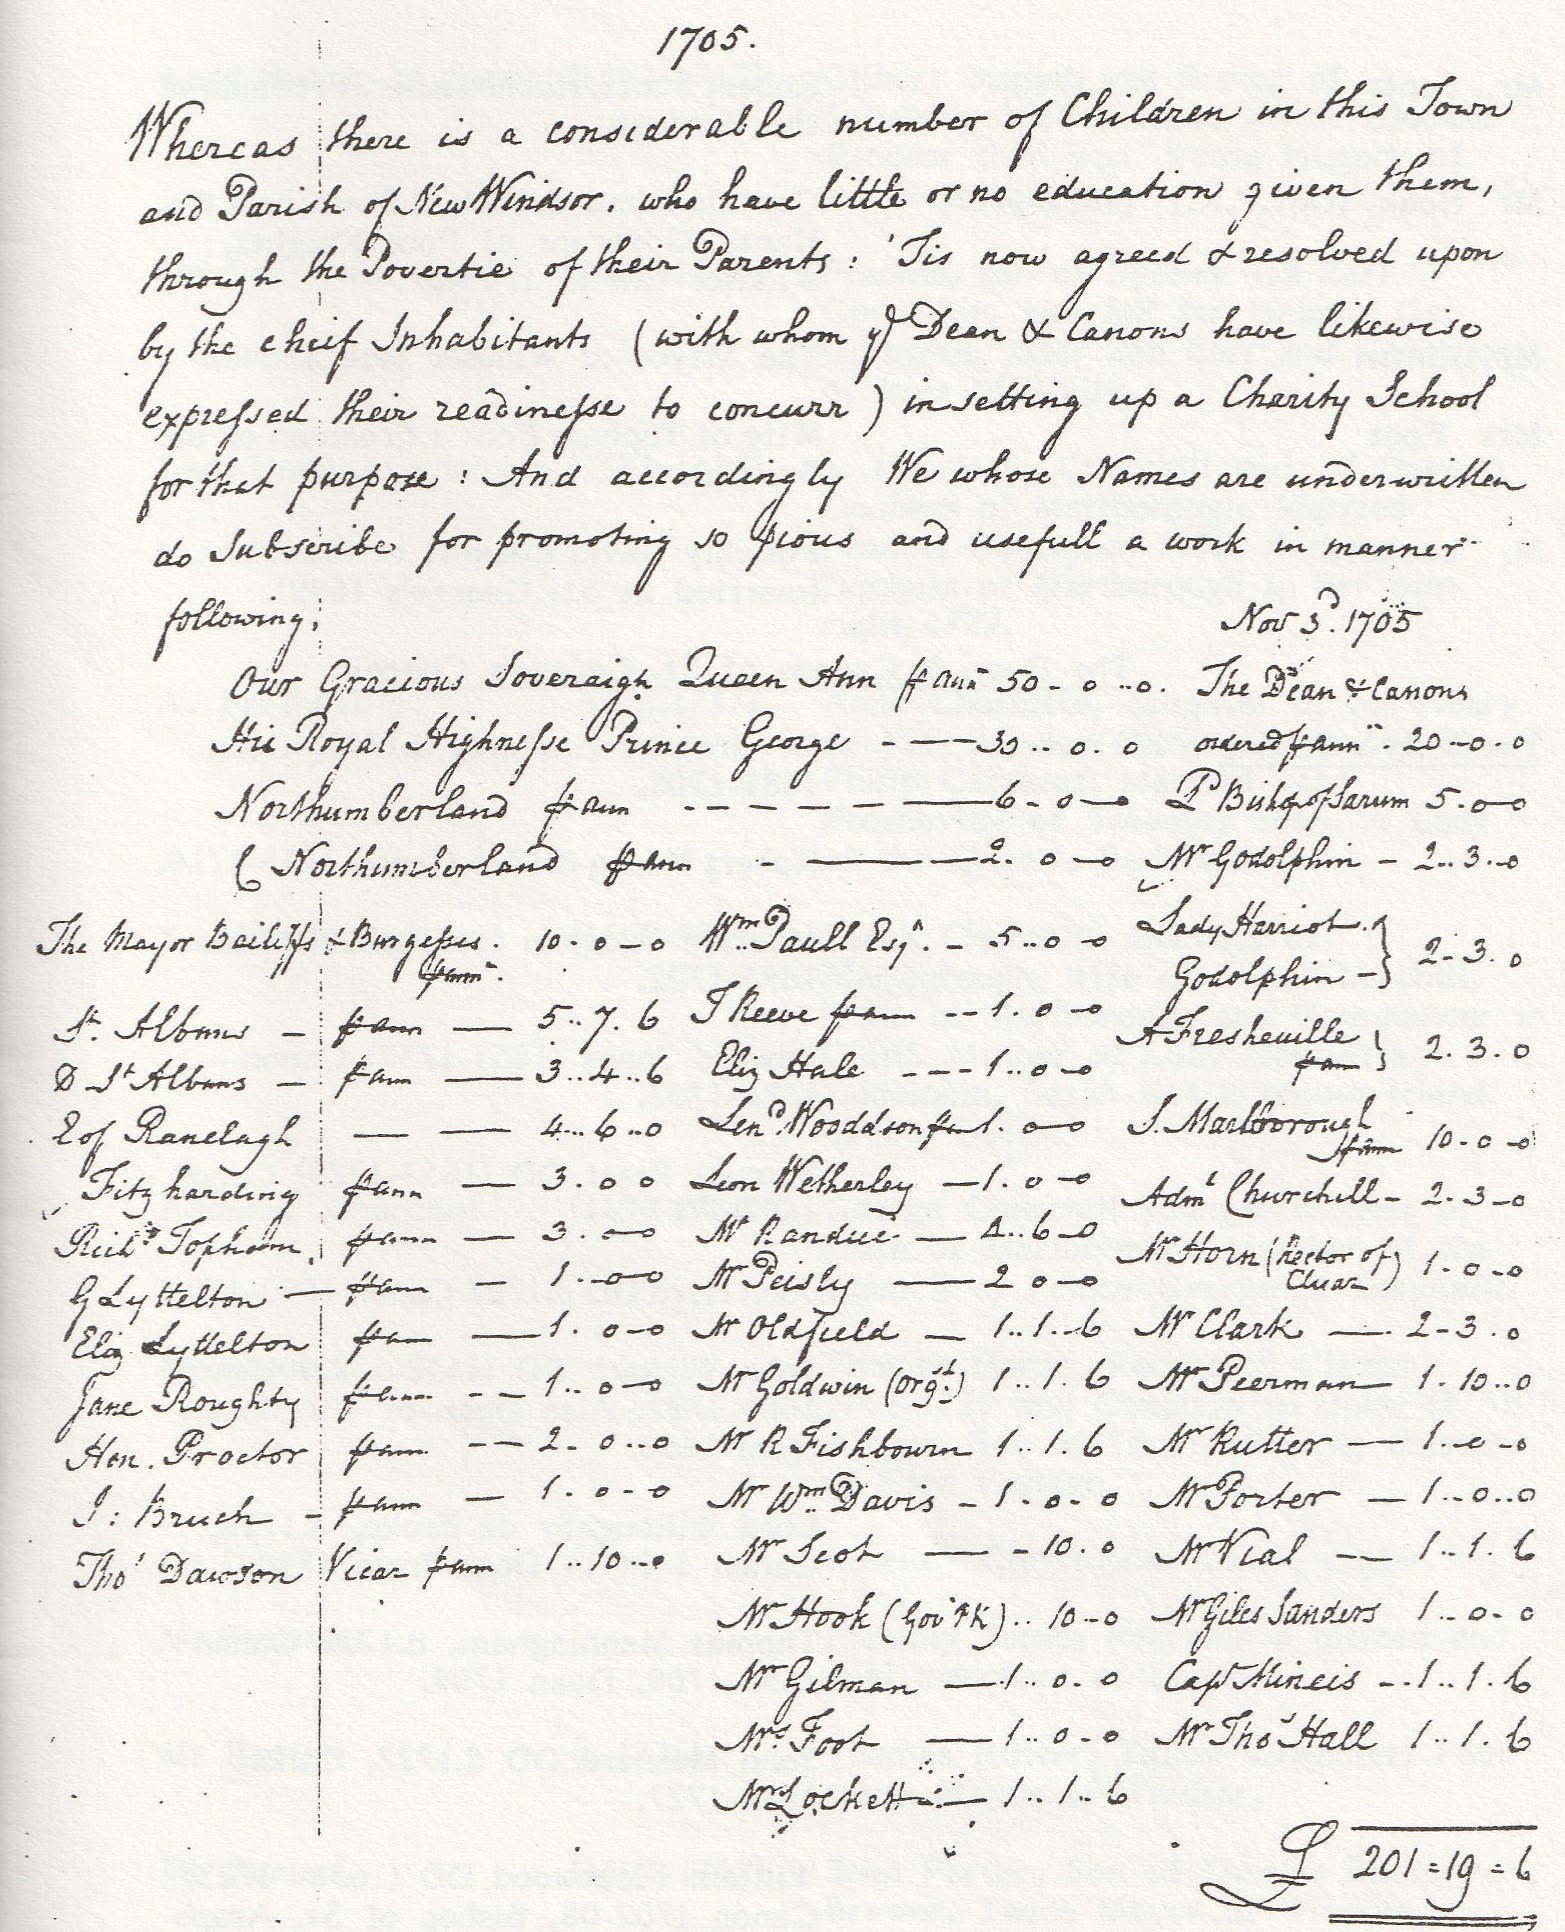 1705.
Whereas there is a considerable number of Children in this Town
and Parish of New Windsor. who have little or no education given them,
through the Povertie of their Parents: 'Tis now agreed & resolved upon
by the cheif Inhabitants (with whom ye Dean & Canons have likewise
expressed their readinesse to concurr) in setting up a Charity School
for that purpose: And accordingly We whose Names are underwritten
do Subscribe for promoting so pious and usefull a work in manner
following:
Nov 3d. 1705
Our Gracious Soveraign Queen Ann p ann 50 - 0 - 0. The Dean & Canons
His Royal Highnesse Prince George - — 30 .. 0 . 0 ordered p ann . 20 - 0 . 0
Northumberland p ann - - - - - — 6 - 0 - 0 Ld Bishop of Sarum 5 . 0 - 0
Northumberland p ann - — 2 . 0 - 0 Mr Godolphin - 2 .. 3 .. 0
The Mayor Bailiffs & Burgesses. 10 - 0 - 0 Wm Paull Esqr. - 5 .. 0 - 0 Lady Harriot
p ann. Godolphin - } 2 - 3 . 0
St. Albans - p ann — 5 .. 7 . 6 J Reeve p ann -- 1 . 0 - 0 A Fresheville
p an } 2 . 3 . 0
D St Albans - p ann — 3 .. 4 .. 6 Eliz Hale - - - 1 .. 0 - 0
E of Ranelagh — — 4 .. 6 .. 0 Lend. Wooddson p an 1 . 0 - 0 S. Marlborough
p ann 10 - 0 - 0
Fitzharding p ann — 3 . 0 0 Leon Wetherley — 1 . 0 - 0 Adml Churchill - 2 - 3 - 0
Richd Topham p ann — 3 . 0 - 0 Mr Randue — 4 .. 6 - 0 Mr Horn (Rector of
Cluar) 1 . 0 - 0
G Lyttelton — p ann — 1 . 0 - 0 Mr Peisly — 2 0 - 0
Eliz Lyttelton p an — 1 . 0 - 0 Mr Oldfield — 1 .. 1 .. 6 Mr Clark — 2 - 3 . 0
Jane Roughty p ann - - 1 .. 0 - 0 Mr Goldwin (Orgt.) 1 .. 1 . 6 Mr Peerman — 1 . 10 .. 0
Hen. Proctor p ann - — 2 - 0 .. 0 Mr R Fishbourn 1 .. 1 . 6 Mr Rutter — 1 .. 0 - 0
J: Bruch - p ann — 1 . 0 - 0 Mr Wm Davis - 1 . 0 - 0 Mr Porter — 1 .. 0 .. 0
Thos Dawson Vicar p ann 1 .. 10 .. 0 Mr Scot — - 10 . 0 Mr Vial - — 1 .. 1 . 6
Mr Hook (Govr PK) .. 10 - 0 Mr Giles Sanders 1 .. 0 - 0
Mr Gilman — 1 .. 0 . 0 Capt Mineis - . 1 .. 1 . 6
Mrs Foot — 1 .. 0 - 0 Mr Thos Hall 1 .. 1 . 6
Mr Lockett — 1 .. 1 .. 6
£ 201 = 19 = 6